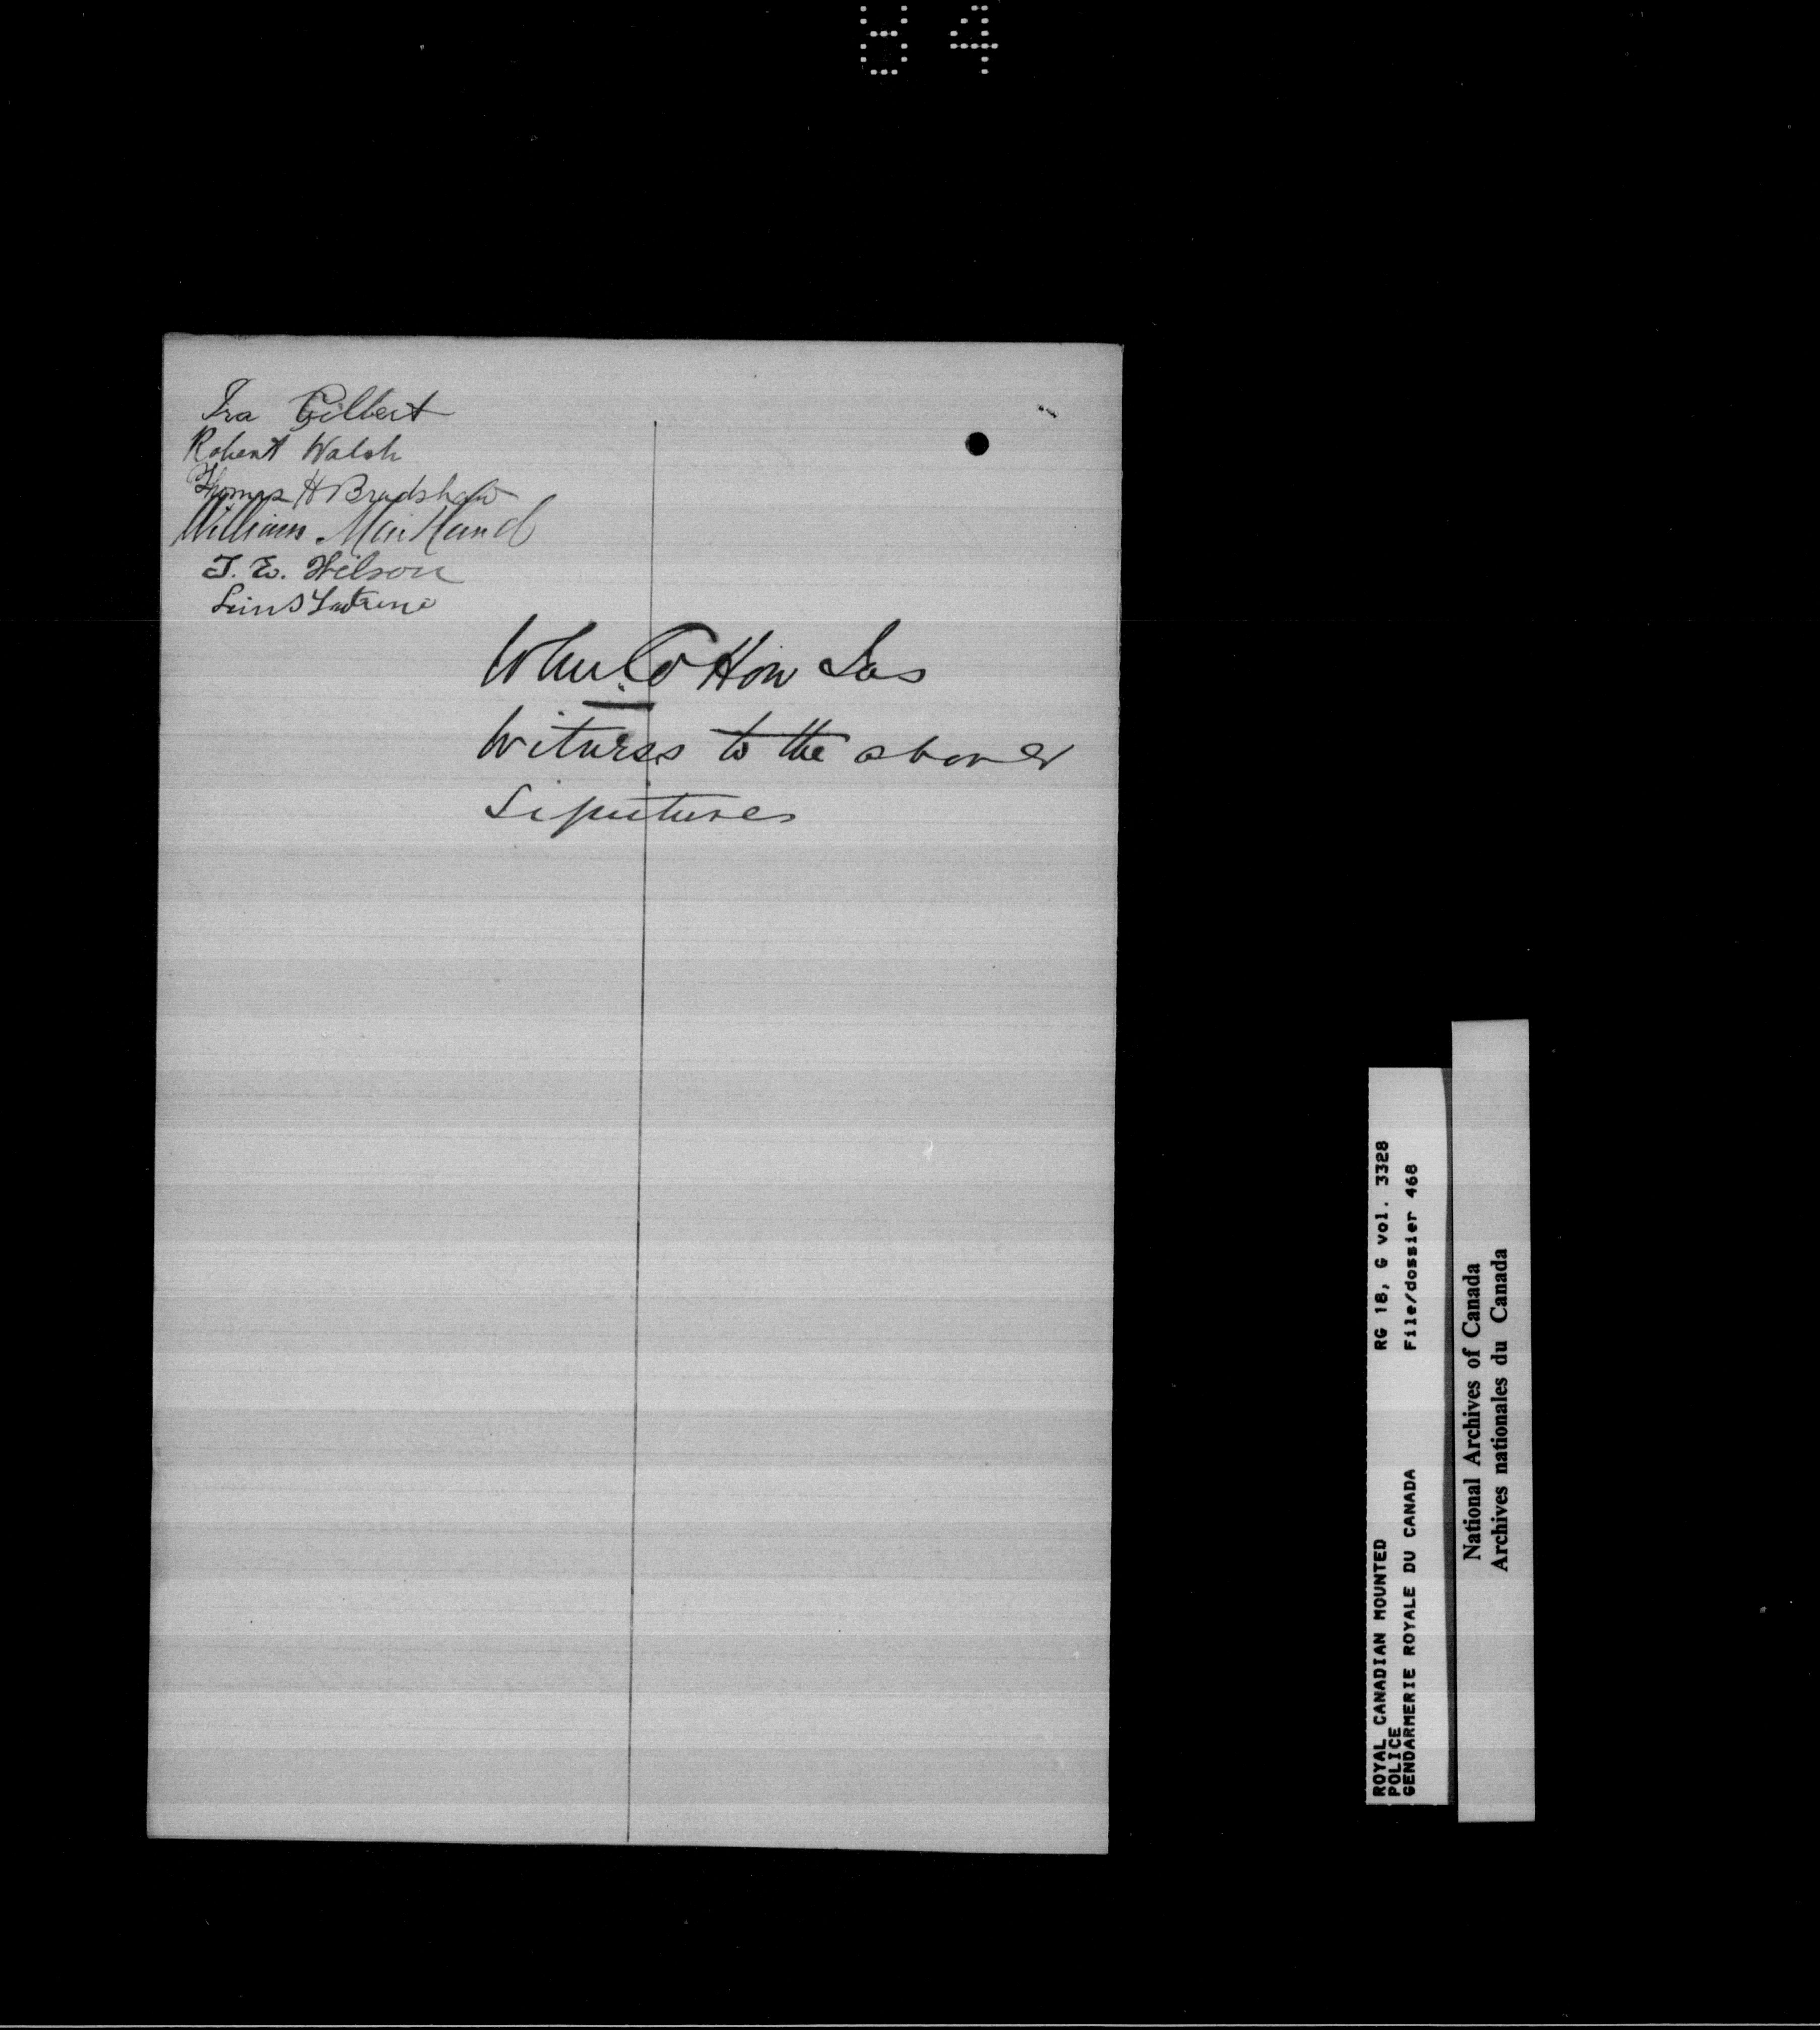 Ira Gilbert
Robert Walsh
Thomas H Bradshaw
William Maitland
T. E. Wilson
Witness to the above
Signatures
ROYAL CANADIAN MOUNTED
POLICE
GENDARMERIE ROYALE DU CANADA
RG 18, G vol. 3328
File/dossier 468
National Archives of Canada
Archives nationales du Canada